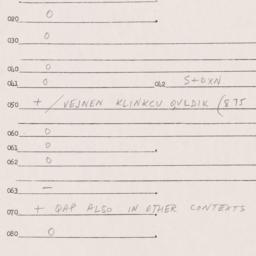 020. O
030. O
040. O
041 O 042. S+DXN
050. + / VEJNEN KLINKCU QVLDIK (875
060. O
061. O
062. O
063. –
070. + QAP ALSO IN OTHER CONTEXTS
080. O